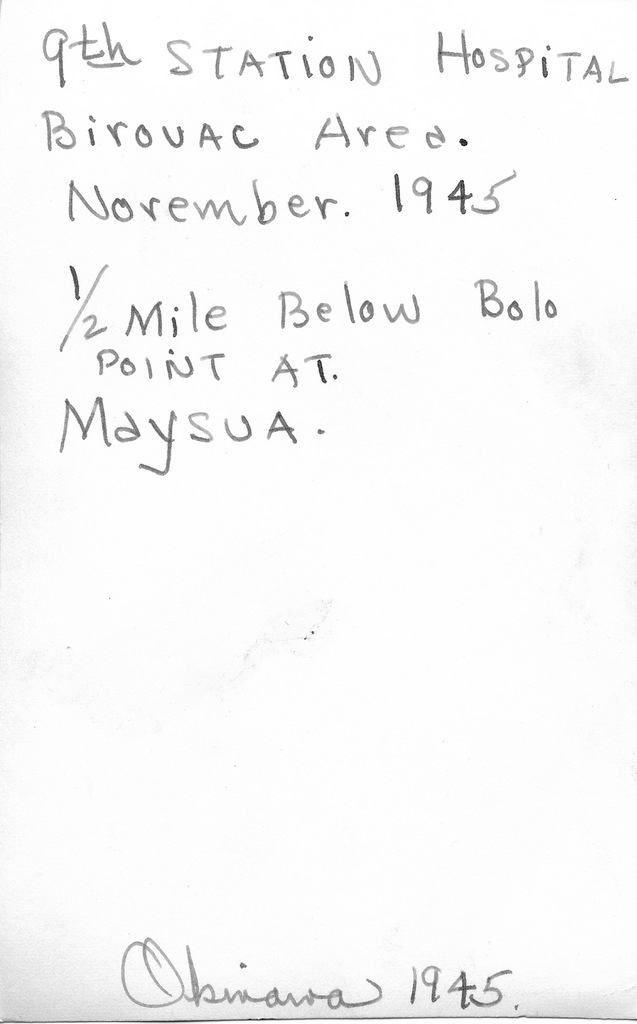 9th STATiON HOSPiTAL
BirouAC Area.
November. 1945
1/2 Mile Below Bolo
POINT AT.
MaySUA.
Okinawa 1945.